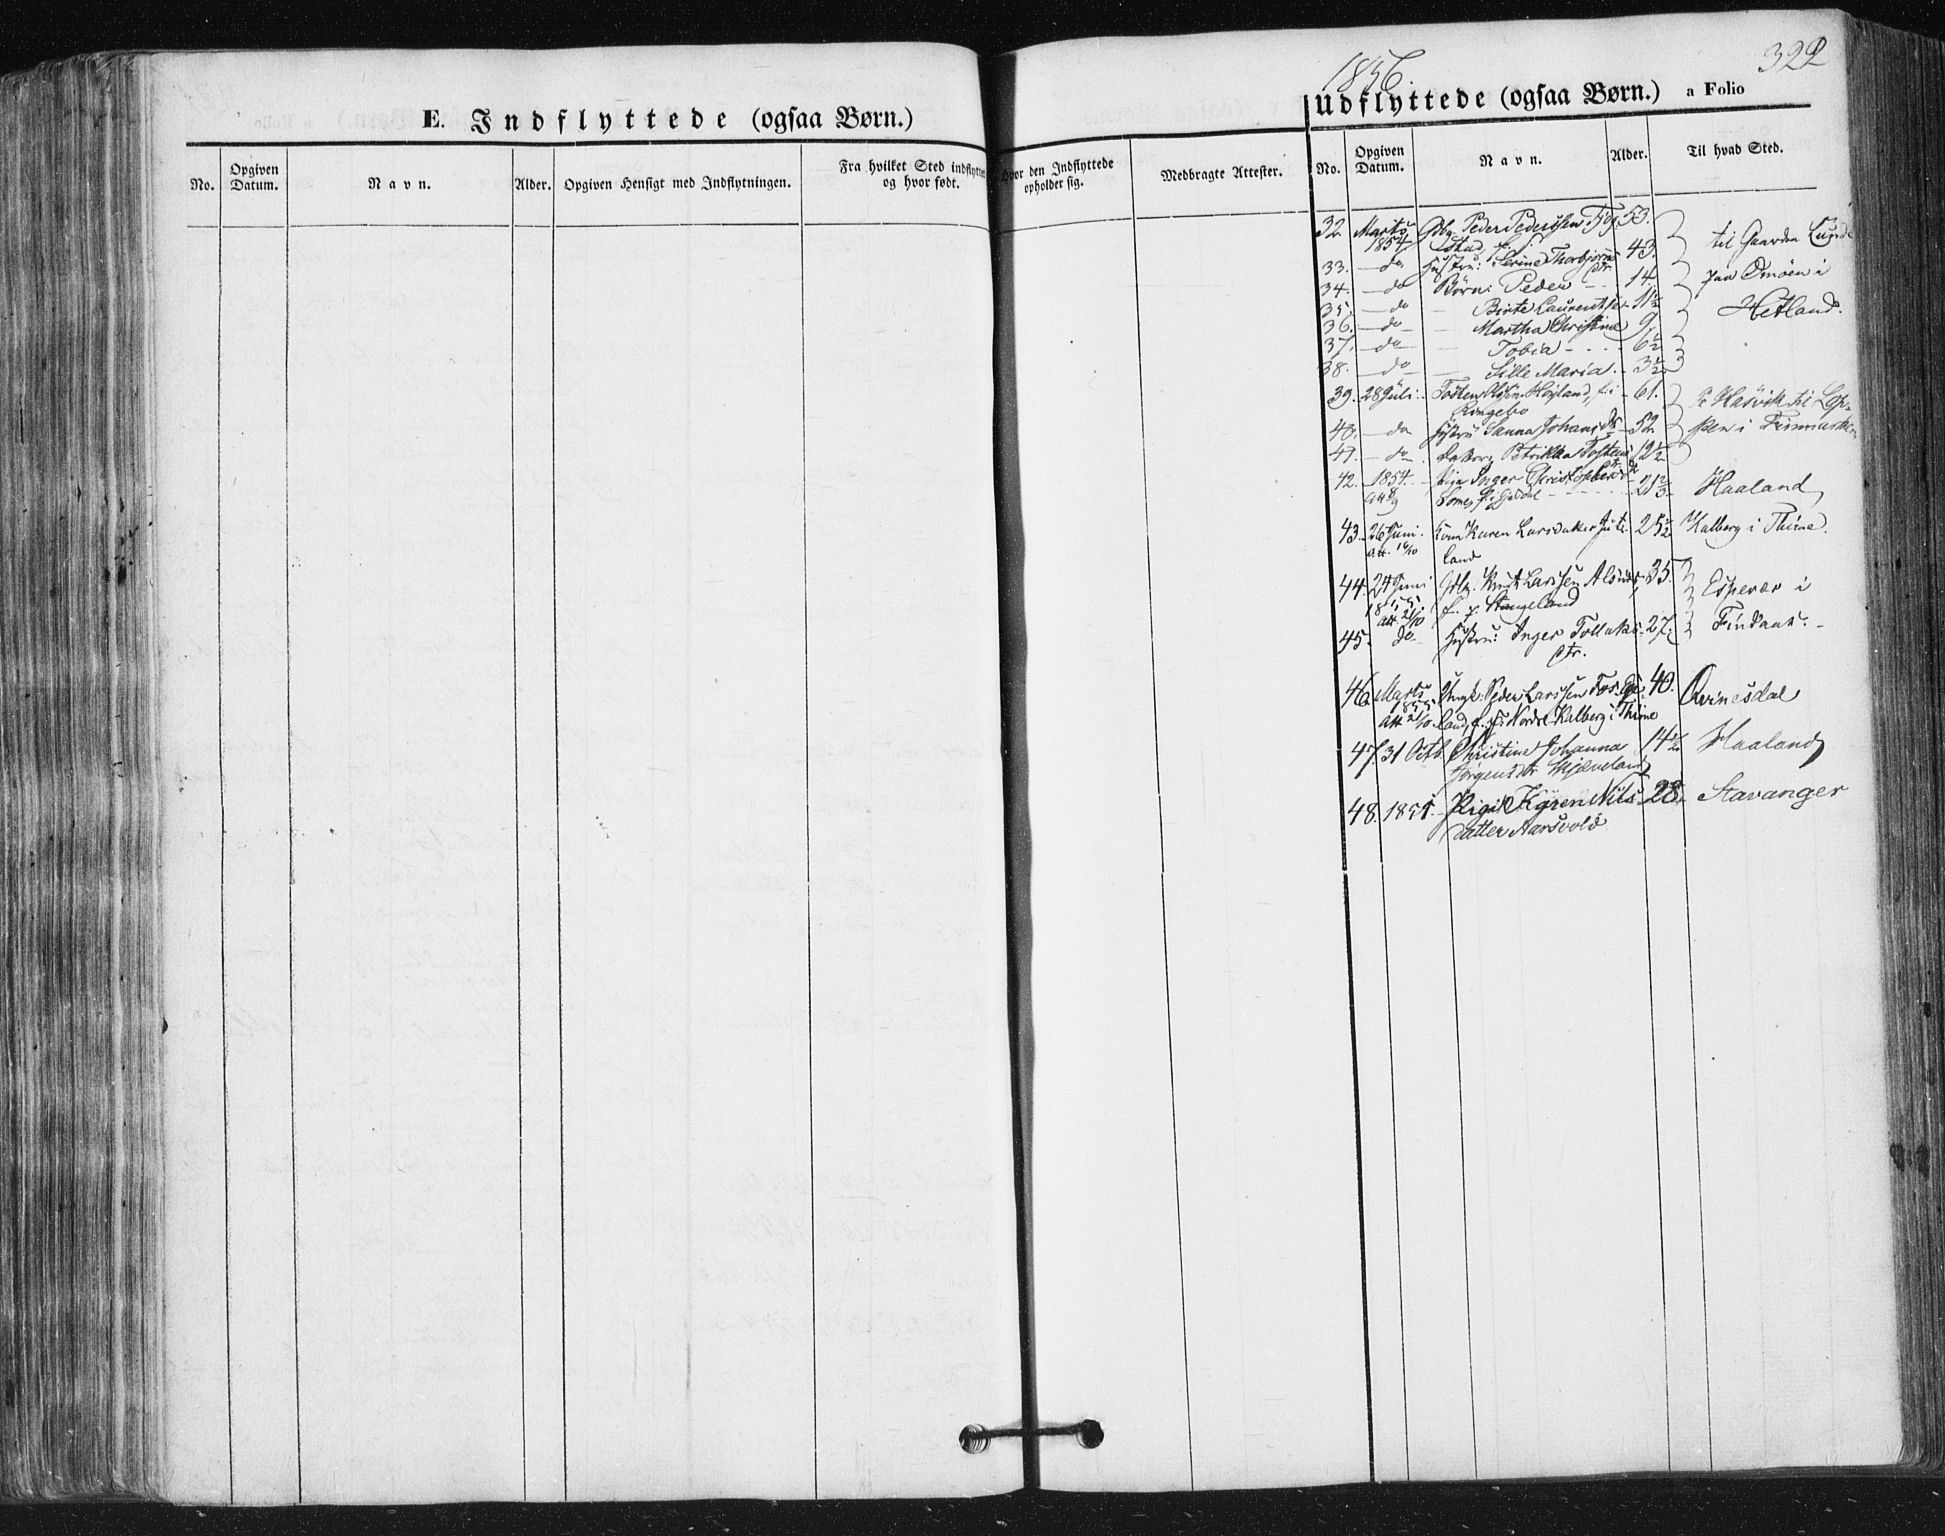 322
1856
E. Indflyttede (ogsaa Børn.)
Udflyttede (ogsaa Børn.) a Folio
No. Opgiven Datum. Navn. Alder. Opgiven Hensigt med Indflytningen. Fra hvilket Sted indflyttet og hvor født. Hvor den Indflyttede opholder sig. Medbragte Attester.
No. Opgiven Datum. Navn. Alder. Til hvad Sted.
32. Marts Gbr. Peder Pedersen Fjog- 53. til Gaarden Lunde
1854 stad
33. — do Hustru: Serine Thorbjørns 43.
dtr.
34. — do Børn: Peder — 14. paa Omöen i
35. — do — Birte Laurentse — 11½ Hetland.
36. — do — Martha Christine 9
37. — do — Tobia - - - 6½
38. — do — Sille Maria - 3½
39. 28 Juli. Tosten Olsen Høyland, f. i 61. Hasvik til Lop-
Ringebo
40. — do Hustru Sanna Johansdtr 52 pen i Finmarken
41. — do Datter Petrikka Tostens 12½
dtr.
42. 1854. Pige Inger Christophersdtr 21½ Haaland
43. 26 Juni. Kone Karen Larsdatter 25½ Kalberg i Thime.
Att. 16/10 land
44. 24 Juni Gbr. Knut Larssen Alsnes, 35. Espevær i
1855. f. p. Stangeland
Att. 2/10
45. do Hustru: Inger Tollaks- 27. Findaas.
dtr.
46. Marts Ungk: Peder Larssen Fos-Ege 40. Qvinesdal
1855
Att 2/10 land, f. p. Nordre Kalberg i Thime
47. 31 Octb. Christine Johanna 14½ Haaland
Jørgensdtr Skjæveland
48. 1854 Pige Karen Nils 28. Stavanger
datter Aarsvold